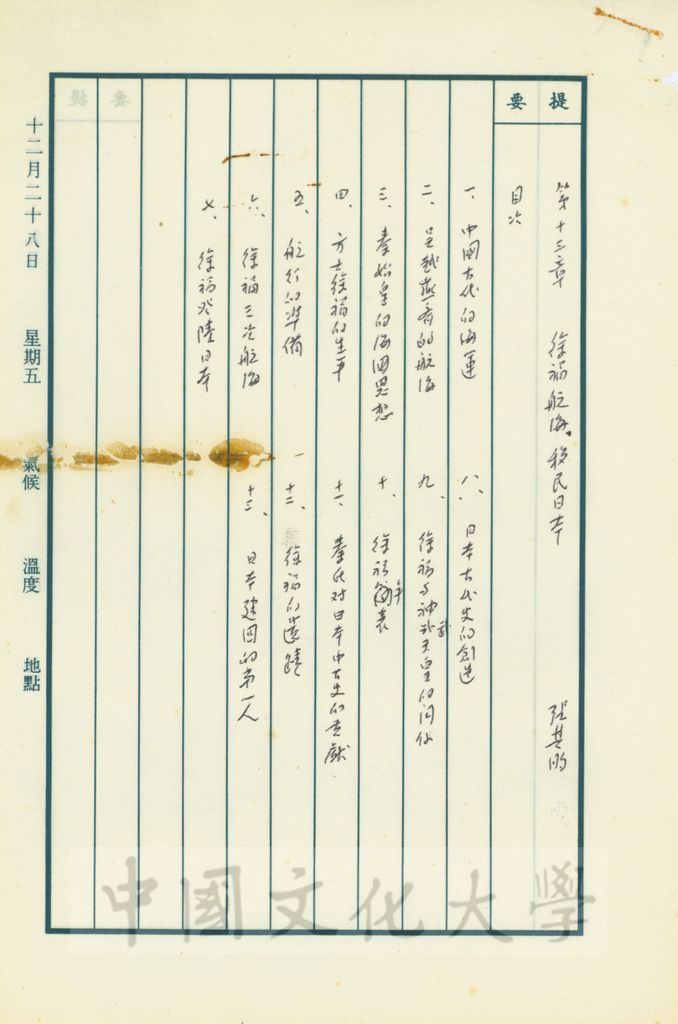 提要
第十三章 徐福航海、移民日本 張其昀
目次
一、中國古代的海運
二、吳越燕齊的航海
三、秦始皇的海國思想
四、方士徐福的生平
五、航行的準備
六、徐福三次航海
七、徐福登陸日本
八、日本古代史的創造
九、徐福與神武天皇的關係
十、徐福年表
十一、秦氏對日本中古史的貢獻
十二、徐福的遺蹟
十三、日本建國的第一人
十二月二十八日 星期五 氣候 溫度 地點
中國文化大學